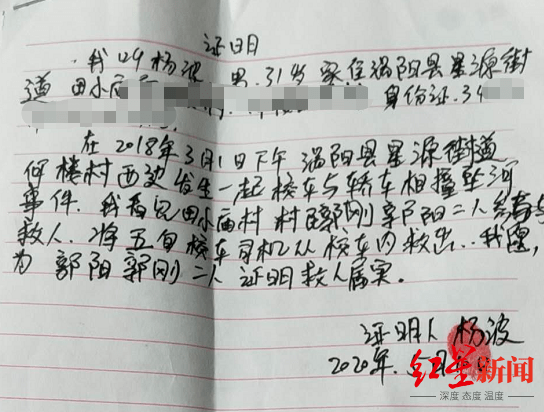 证明
我叫杨波 男.31岁 家住涡阳县星源街
道 田小庙 身份证.34
在2018年3月1日下午 涡阳县星源街道
何楼村西边发生一起校车与轿车相撞坠河
事件.我看见田小庙村 村民郭刚 郭阳二人参与
救人.将五旬校车司机从校车内救出..我愿,
为 郭阳郭刚二人 证明救人属实.
证明人 杨波
2020年.5月
红星新闻
深度 态度 温度